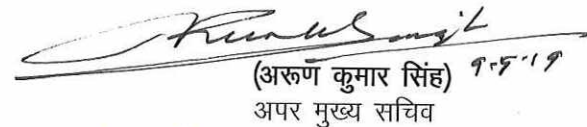 (अरूण कुमार सिंह) 9.5.19
अपर मुख्य सचिव